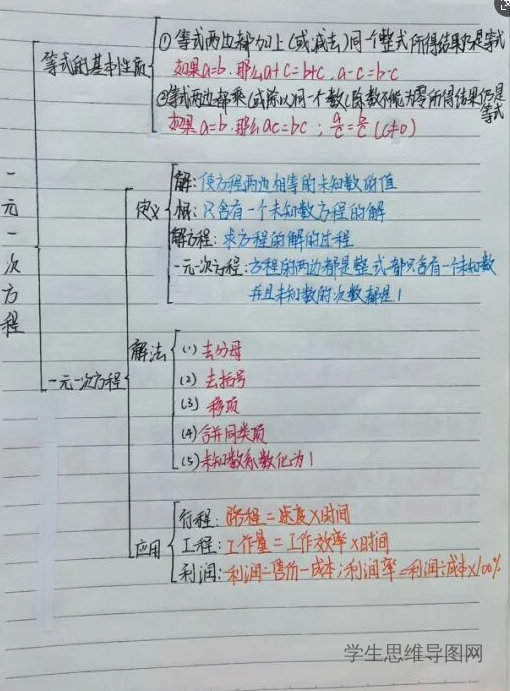 一元一次方程
等式的基本性质
①等式两边都加上(或减去)同一个整式所得结果仍是等式
如果a=b,那么a+c=b+c, a-c=b-c
②等式两边都乘(或除以)同一个数(除数不能为零所得结果仍是
等式
如果a=b,那么ac=bc; a/c=b/c (c≠0)
一元一次方程
定义
解:使方程两边相等的未知数的值
根:只含有一个未知数方程的解
解方程:求方程的解的过程
一元一次方程:方程的两边都是整式都只含有一个未知数
并且未知数的次数都是1
解法
(1)去分母
(2)去括号
(3)移项
(4)合并同类项
(5)未知数系数化为1
应用
行程:路程=速度×时间
工程:工作量=工作效率×时间
利润:利润=售价-成本;利润率=利润÷成本×100%
学生思维导图网